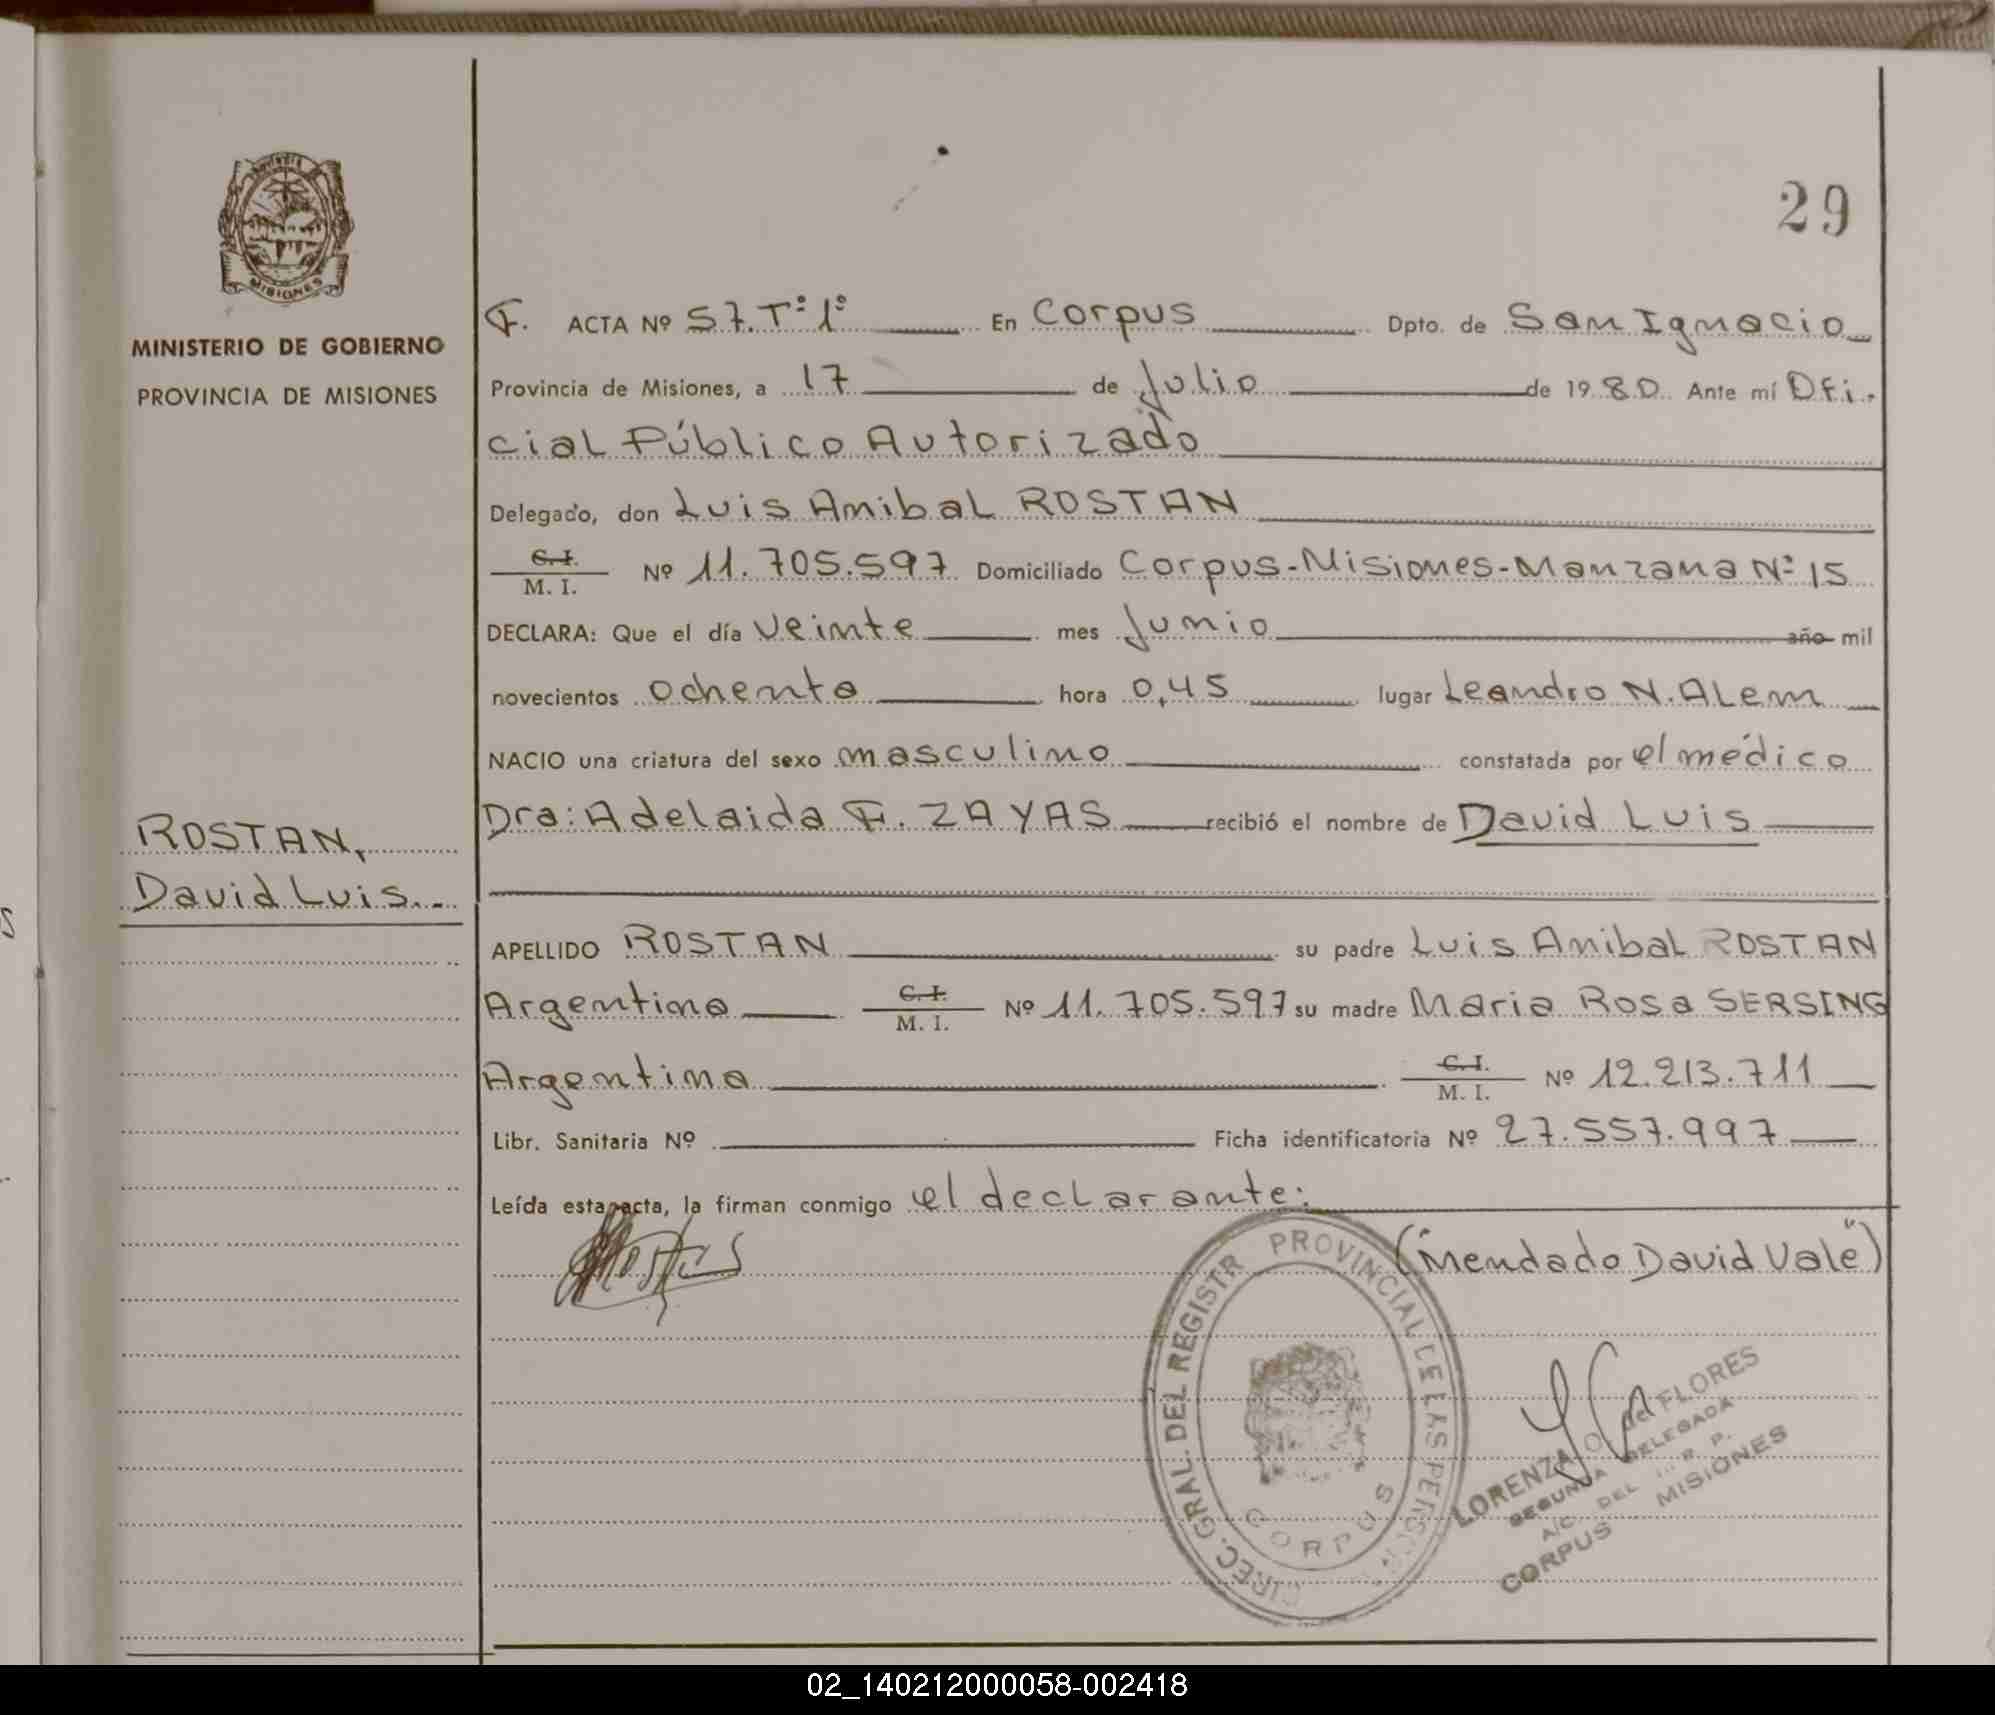 29
Provincia
MISIONES
MINISTERIO DE GOBIERNO
PROVINCIA DE MISIONES
ROSTAN,
David Luis.-
F. ACTA Nº 57.Tº:1º En Corpus Dpto. de San Ignacio
Provincia de Misiones, a 17 de Julio de 1980. Ante mí Ofi-
cial Público Autorizado
Delegado, don Luis Anibal ROSTAN
C.I.
M. I. Nº 11.705.597 Domiciliado Corpus-Misiones-Manzana Nº 15
DECLARA: Que el día veinte mes Junio año mil
novecientos ochenta hora 0,45 lugar Leandro N. ALem
NACIO una criatura del sexo masculino constatada por el médico
Dra: Adelaida F. ZAYAS recibió el nombre de David Luis
APELLIDO ROSTAN su padre Luis Anibal ROSTAN
Argentino C.I. M. I. Nº 11.705.597 su madre Maria Rosa SERSING
Argentina C.I. M. I. Nº 12.213.711
Libr. Sanitaria Nº Ficha identificatoria Nº 27.557.997
Leída esta acta, la firman conmigo el declarante:
("Mendado David Vale")
DIREC. GRAL. DEL REGISTR PROVINCIAL DE LAS PERSON
CORPUS
LORENZA O. de FLORES
SEGUNDA DELEGADA
A/C DEL R. P.
CORPUS MISIONES
02_140212000058-002418